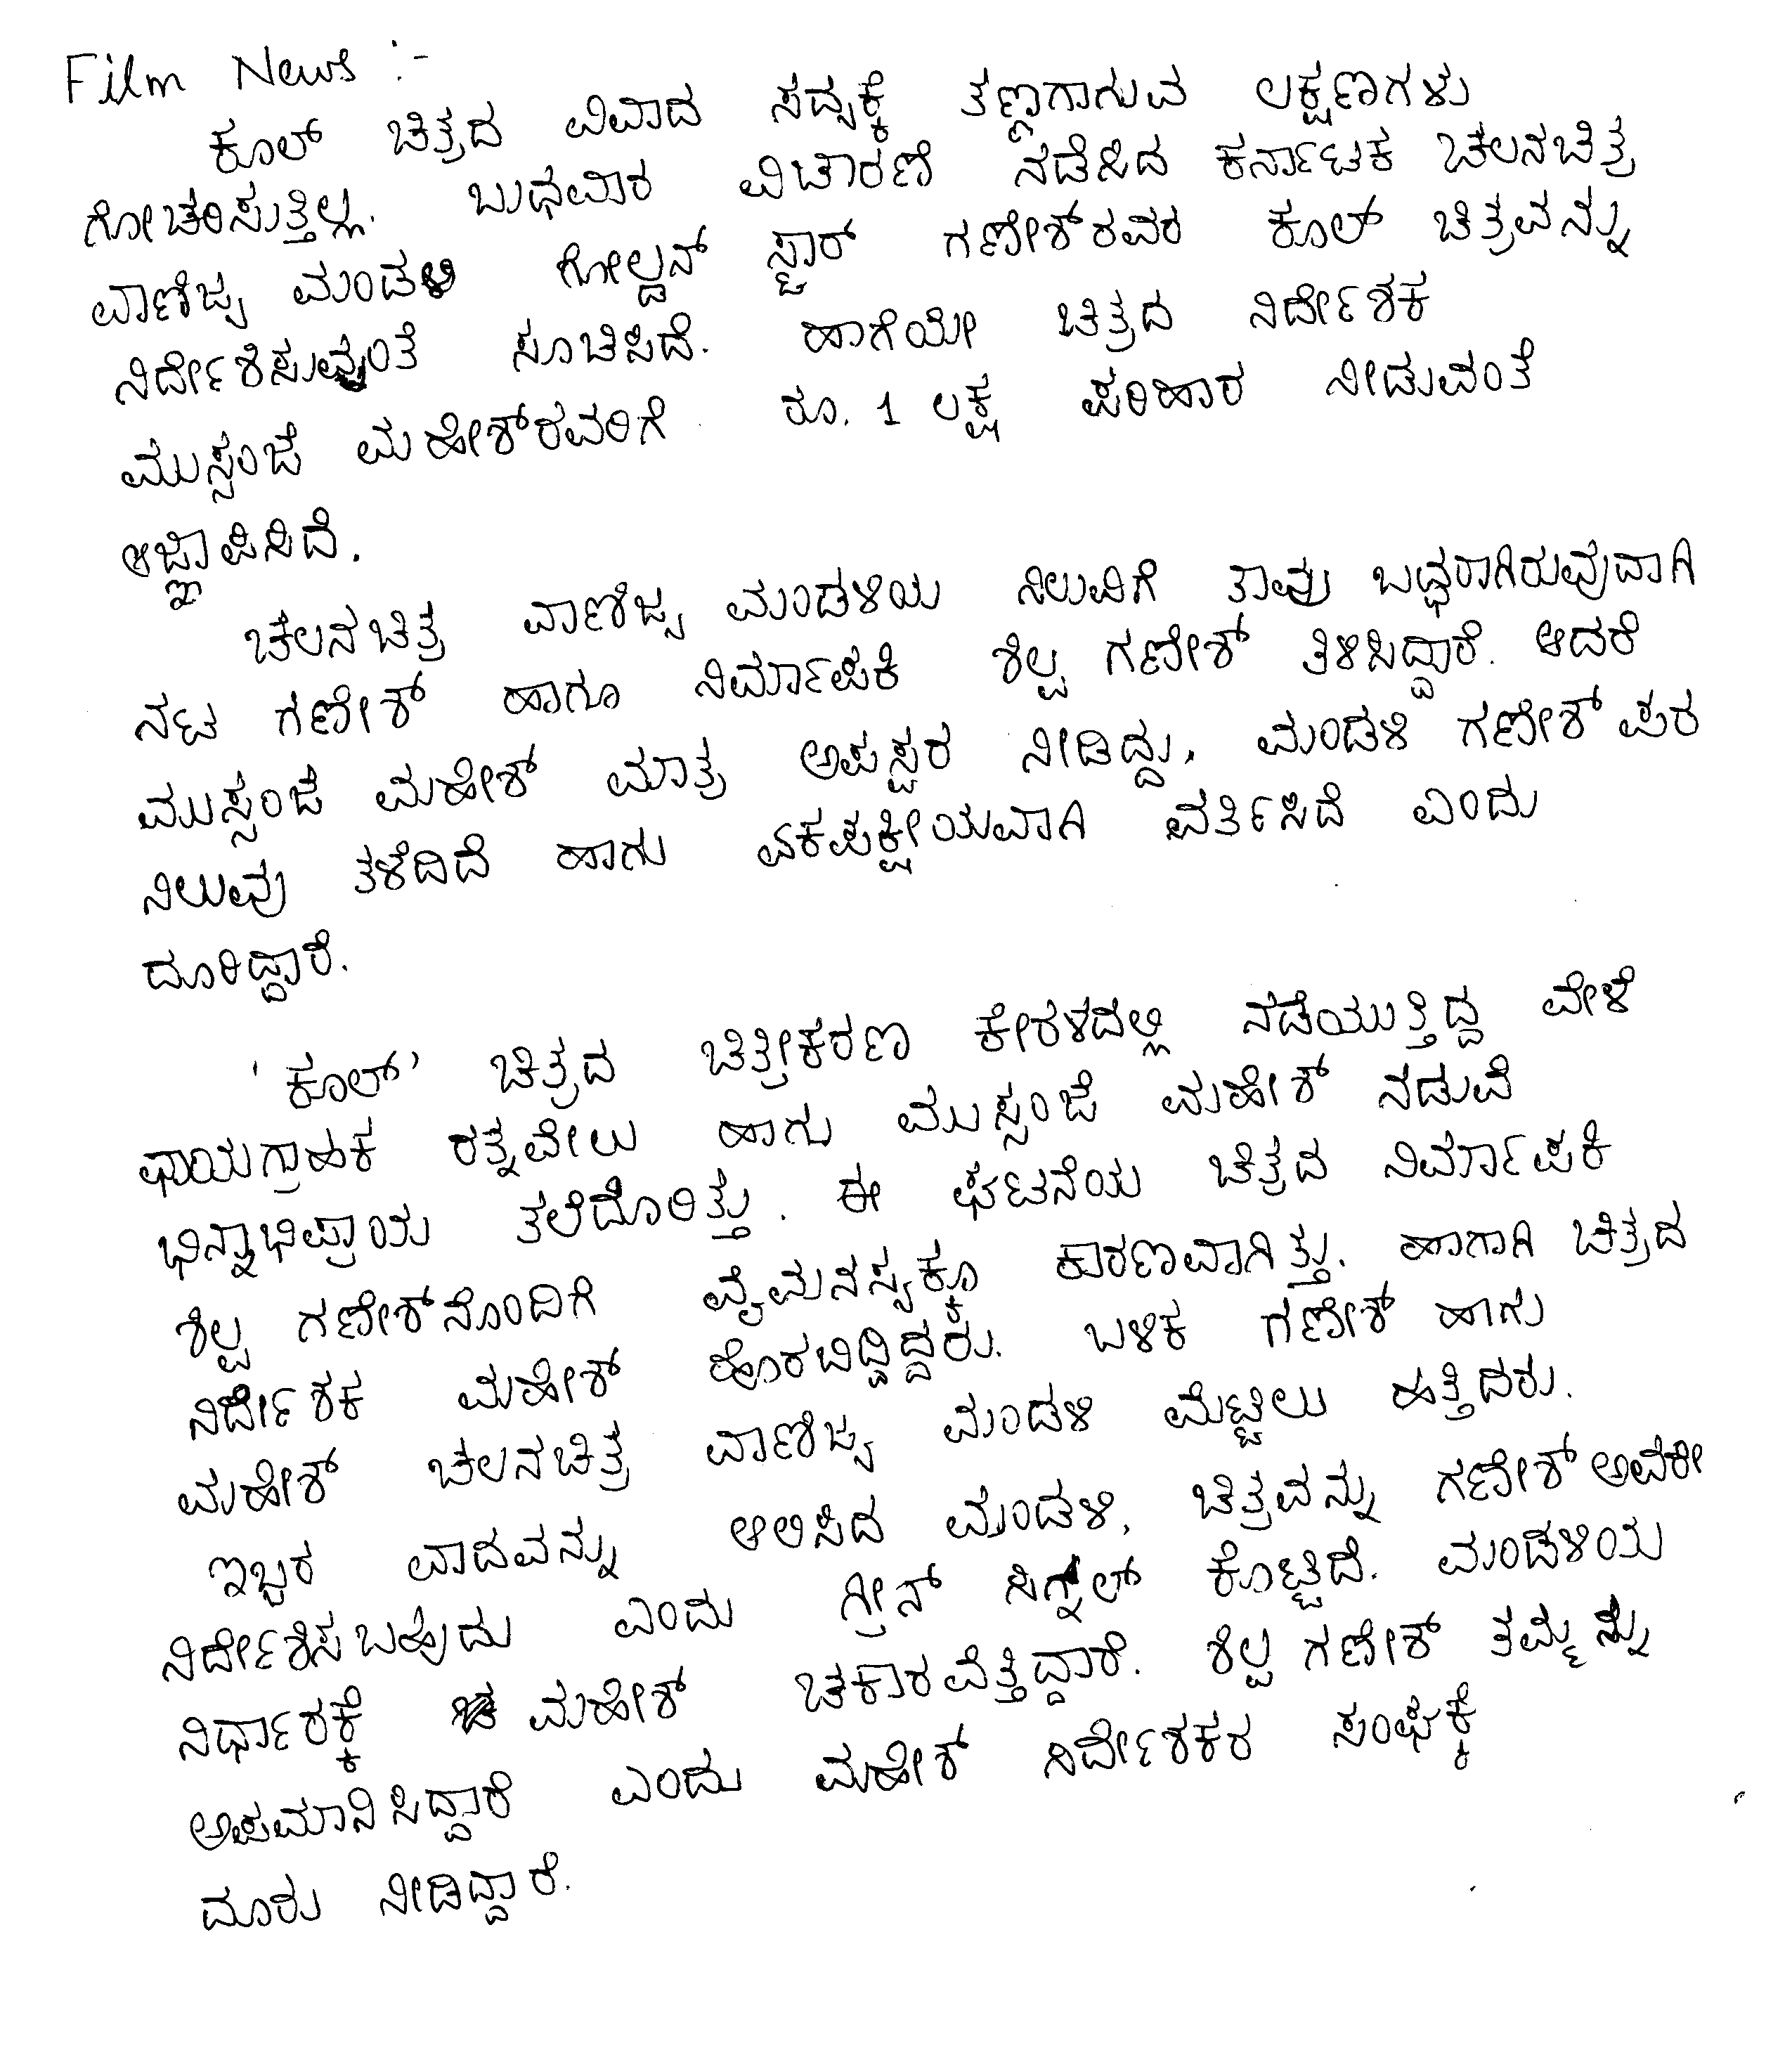 Film News :-
ಕೂಲ್ ಚಿತ್ರದ ವಿವಾದ ಸದ್ಯಕ್ಕೆ ತಣ್ಣಗಾಗುವ ಲಕ್ಷಣಗಳು
ಗೋಚರಿಸುತ್ತಿಲ್ಲ. ಬುಧವಾರ ವಿಚಾರಣೆ ನಡೆಸಿದ ಕರ್ನಾಟಕ ಚಲನಚಿತ್ರ
ವಾಣಿಜ್ಯ ಮಂಡಳಿ ಗೋಲ್ಡನ್ ಸ್ಟಾರ್ ಗಣೇಶ್‌ರವರ ಕೂಲ್ ಚಿತ್ರವನ್ನು
ನಿರ್ದೇಶಿಸುವಂತೆ ಸೂಚಿಸಿದೆ. ಹಾಗೆಯೇ ಚಿತ್ರದ ನಿರ್ದೇಶಕ
ಮುಸ್ಸಂಜೆ ಮಹೇಶ್‌ರವರಿಗೆ ರೂ. 1 ಲಕ್ಷ ಪರಿಹಾರ ನೀಡುವಂತೆ
ಆಜ್ಞಾಪಿಸಿದೆ.
ಚಲನಚಿತ್ರ ವಾಣಿಜ್ಯ ಮಂಡಳಿಯ ನಿಲುವಿಗೆ ತಾವು ಬದ್ಧರಾಗಿರುವುದಾಗಿ
ನಟ ಗಣೇಶ್ ಹಾಗೂ ನಿರ್ಮಾಪಕಿ ಶಿಲ್ಪ ಗಣೇಶ್ ತಿಳಿಸಿದ್ದಾರೆ. ಆದರೆ
ಮುಸ್ಸಂಜೆ ಮಹೇಶ್ ಮಾತ್ರ ಅಪಸ್ವರ ನೀಡಿದ್ದು, ಮಂಡಳಿ ಗಣೇಶ್ ಪರ
ನಿಲುವು ತಳೆದಿದೆ ಹಾಗು ಏಕಪಕ್ಷೀಯವಾಗಿ ವರ್ತಿಸಿದೆ ಎಂದು
ದೂರಿದ್ದಾರೆ.
'ಕೂಲ್' ಚಿತ್ರದ ಚಿತ್ರೀಕರಣ ಕೇರಳದಲ್ಲಿ ನಡೆಯುತ್ತಿದ್ದ ವೇಳೆ
ಛಾಯಗ್ರಾಹಕ ರತ್ನವೇಲು ಹಾಗು ಮುಸ್ಸಂಜೆ ಮಹೇಶ್ ನಡುವೆ
ಭಿನ್ನಾಭಿಪ್ರಾಯ ತಲೆದೊರಿತ್ತು. ಈ ಘಟನೆಯ ಚಿತ್ರದ ನಿರ್ಮಾಪಕಿ
ಶಿಲ್ಪ ಗಣೇಶ್‌ನೊಂದಿಗೆ ವೈಮನಸ್ಯಕ್ಕೂ ಕಾರಣವಾಗಿತ್ತು. ಹಾಗಾಗಿ ಚಿತ್ರದ
ನಿರ್ದೇಶಕ ಮಹೇಶ್ ಹೊರಬಿದ್ದಿದ್ದರು. ಬಳಿಕ ಗಣೇಶ್ ಹಾಗು
ಮಹೇಶ್ ಚಲನಚಿತ್ರ ವಾಣಿಜ್ಯ ಮಂಡಳಿ ಮೆಟ್ಟಿಲು ಹತ್ತಿದರು.
ಇಬ್ಬರ ವಾದವನ್ನು ಆಲಿಸಿದ ಮಂಡಳಿ, ಚಿತ್ರವನ್ನು ಗಣೇಶ್ ಅವರೇ
ನಿರ್ದೇಶಿಸಬಹುದು ಎಂದು ಗ್ರೀನ್ ಸಿಗ್ನಲ್ ಕೊಟ್ಟಿದೆ. ಮಂಡಳಿಯ
ನಿರ್ಧಾರಕ್ಕೆ ಮಹೇಶ್ ಚಕಾರವೆತ್ತಿದ್ದಾರೆ. ಶಿಲ್ಪ ಗಣೇಶ್ ತಮ್ಮನ್ನು
ಅಪಮಾನಿಸಿದ್ದಾರೆ ಎಂದು ಮಹೇಶ್ ನಿರ್ದೇಶಕರ ಸಂಘಕ್ಕೆ
ದೂರು ನೀಡಿದ್ದಾರೆ.